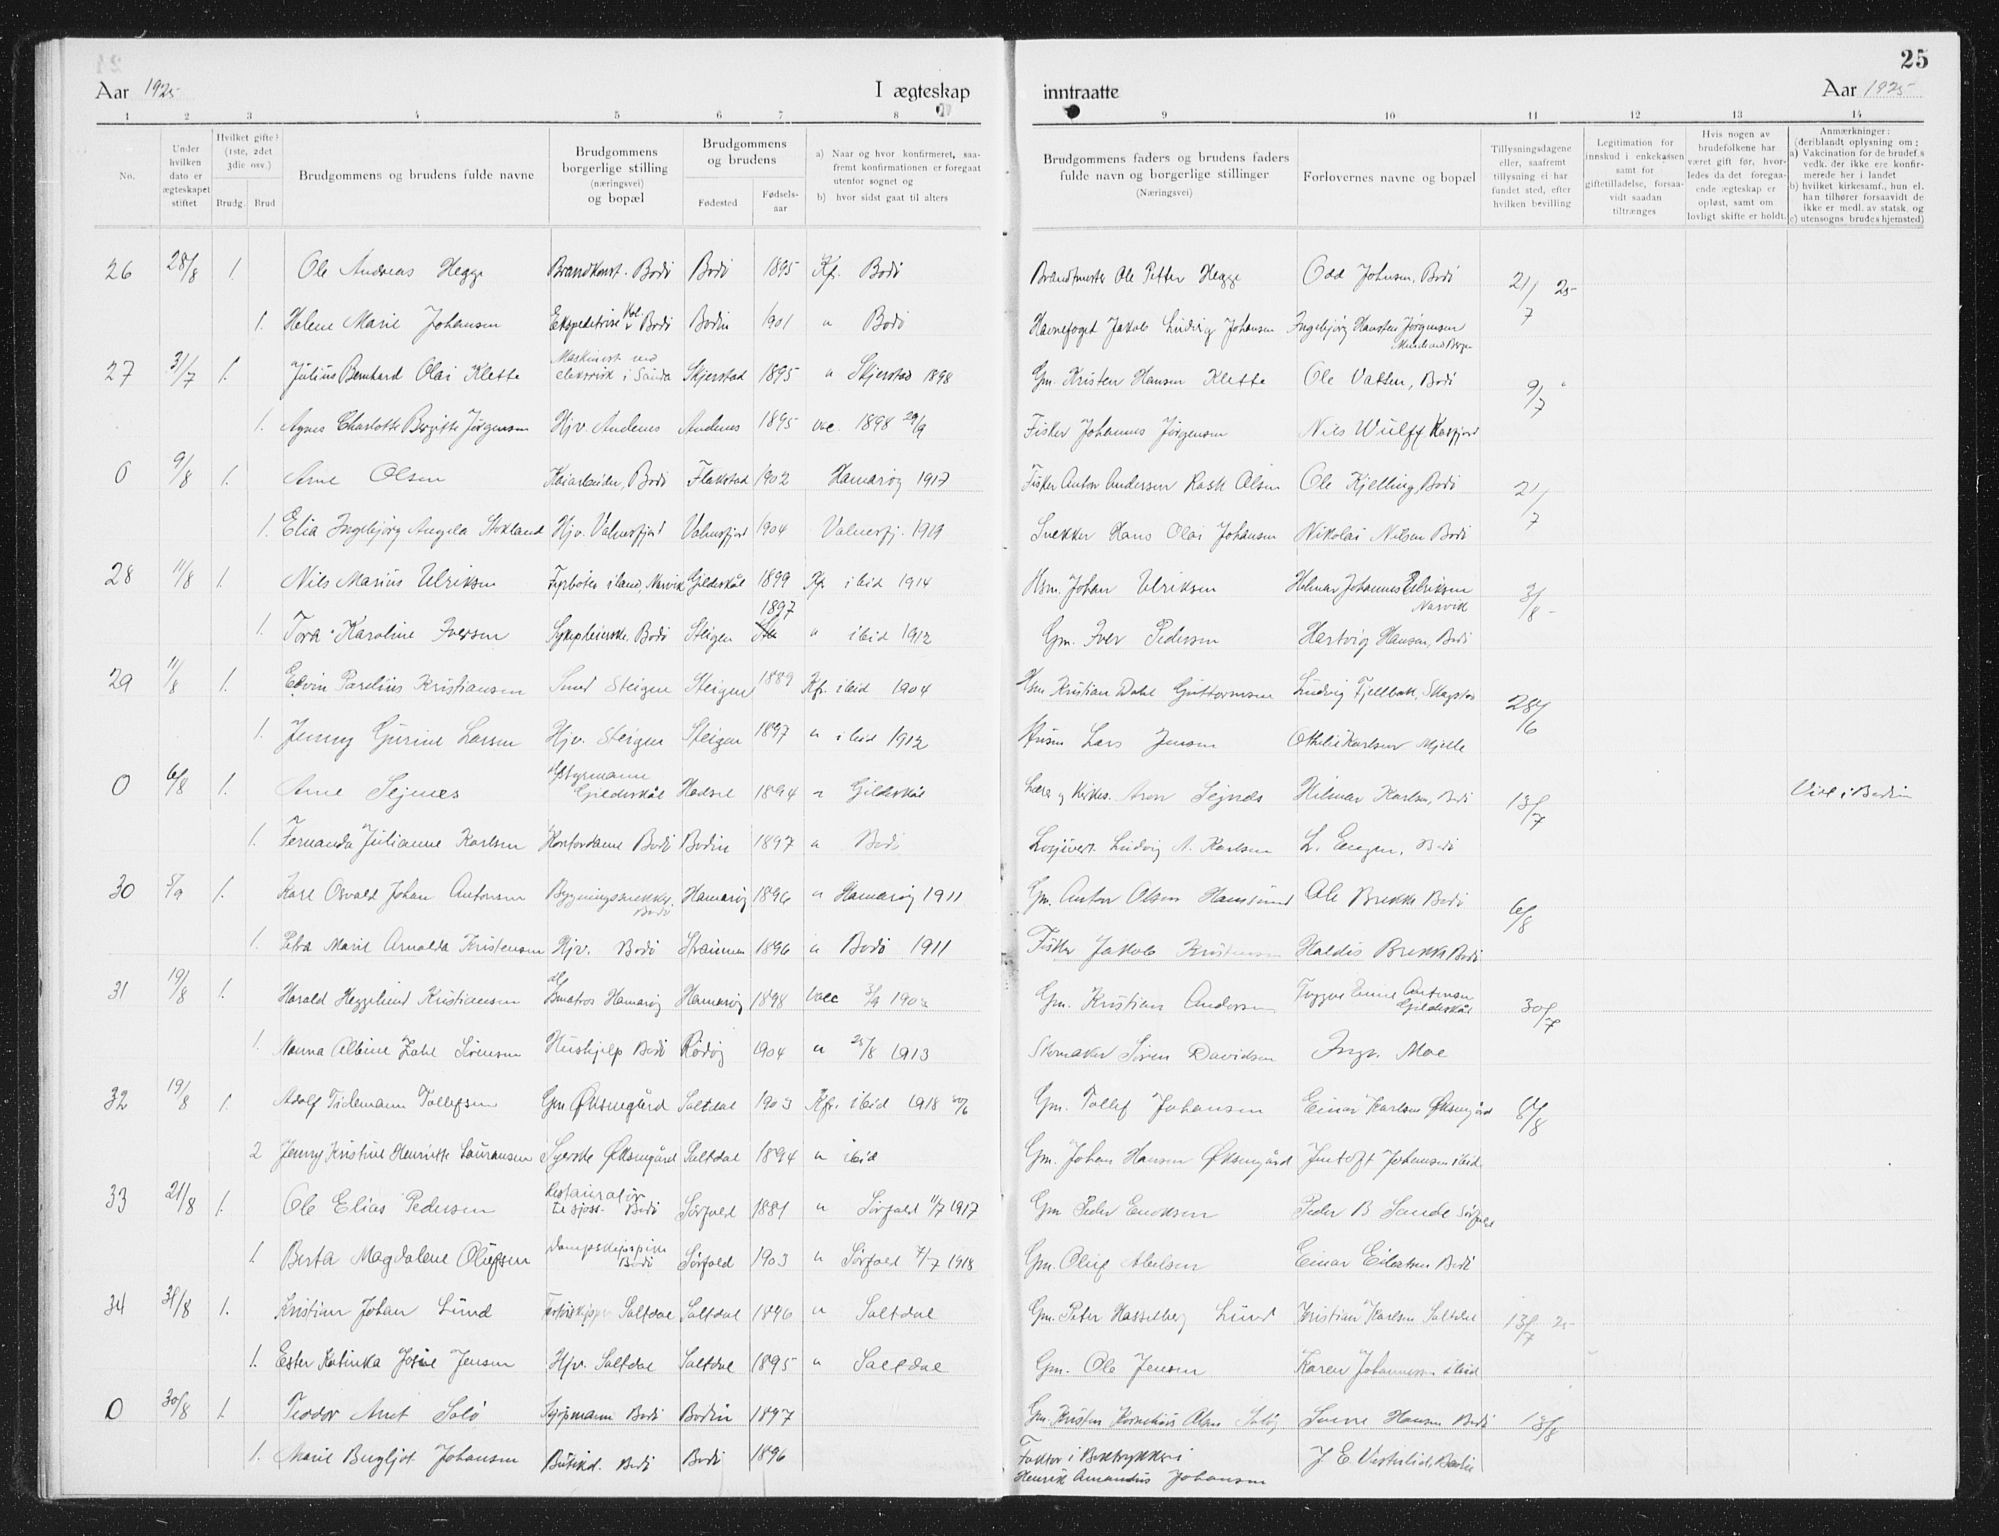 25
Aar 1925 I ægteskap inntraatte Aar 1925
1 2 3 4 5 6 7 8 9 10 11 12 13 14
No.
Under hvilken dato er ægteskapet stiftet
Hvilket gifte? (1ste, 2det 3die osv.)
Brudg. Brud
Brudgommens og brudens fulde navne
Brudgommens borgerlige stilling (næringsvei) og bopæl
Brudgommens og brudens
Fødested
Fødsels-aar
a) Naar og hvor konfirmeret, saafremt konfirmationen er foregaat utenfor sognet og
b) hvor sidst gaat til alters
Brudgommens faders og brudens faders fulde navn og borgerlige stillinger (Næringsvei)
Forlovernes navne og bopæl
Tillysningsdagene eller, saafremt tillysning ei har fundet sted, efter hvilken bevilling
Legitimation for innskud i enkekassen samt for giftetilladelse, forsaavidt saadan tiltrænges
Hvis nogen av brudefolkene har været gift før, hvorledes da det foregaaende ægteskap er opløst, samt om lovligt skifte er holdt.
Anmærkninger: (deriblandt oplysning om:
a) Vakcination for de brudef.s vedk. der ikke ere konfirmerede her i landet
b) hvilket kirkesamf., hun el. han tilhører forsaavidt de ikke er medl. av statsk. og
c) utensogns brudes hjemsted)
26 28/8 1. Ole Andreas Hegge Brandkonst. Bodö Bodö 1895 Kf. Bodö Brandmester Ole Petter Hegge Odd Johnsen, Bodö 21/7 25
1. Helene Marie Johansen Ekspeditrise Bodö Bodin 1901 " Bodö Havnefoged Jakob Ludvig Johansen Ingebjörg Hansten Jörgensen
27 31/7 1. Julius Bernhard Olai Klette Maskinist ved elektrisk i Sauda Skjerstad 1895 " Skjerstad 1898 Gm. Kristen Hansen Klette Ole Vatten, Bodö 9/7 "
1. Agnes Charlotte Bergitte Jörgensen Hjv. Andenes Andenes 1895 vac. 1898 29/9 Fisker Johannes Jörgensen Nils Wulff Kasfjord
0 9/8 1. Arne Olsen Kaiarbeider, Bodö Flakstad 1902 Hamaröy 1917 Fisker Anton Andersen Rask Olsen Ole Kjelling, Bodö 21/7
1. Elia Ingebjörg Angela Stokland Hjv. Valnesfjord Valnesfjord 1904 Valnesfj. 1919 Snekker Hans Olai Johansen Nikolai Nilsen Bodö
28 11/8 1. Nils Marius Ulriksen Fyrböter i land, Narvik Gildeskål 1899 Kf. ibid 1914 Hsm. Johan Ulriksen Helmar Johannes Ulriksen Narvik 3/8
1. Tora Karoline Iversen Sykepleierske. Bodö Steigen 1897 " ibid 1912 Gm. Iver Pedersen Hartvig Hansen, Bodö
29 11/8 1. Edvin Parelius Kristiansen Smed Steigen Steigen 1889 Kfr. ibid 1904 Hsm. Kristian Dahl Guttormsen Ludvig Fjellbakk, Skagstad 28/6
1. Jenny Gurine Larsen Hjv. Steigen Steigen 1897 " ibid 1912 Husm Lars Jensen Othilie Karlsen Mjelle
0 6/8 1. Arne Sejnes Styrmann Gildeskål Hadsel 1894 " Gildeskål Lærer og Kirkes. Aron Sejnæs Hilmar Karlsen, Bodö 13/7 Viet i Bodin
1. Fernanda Julianne Karlsen Kontordame Bodö Bodin 1897 " Bodö Losjivert. Ludvig A. Karlsen L. Engen, Bodö
30 5/9 1. Karl Osvald Johan Antonsen Bygningssnekker, Bodö Hamaröy 1896 " Hamaröy 1911 Gm. Anton Olsen Hamsund Ole Brekke Bodö 6/8
1. Petra Marie Arnolda Kristensen Hjv. Bodö Straumen 1896 " Bodö 1911 Fisker Jakob Kristensen Haldis Brekke Bodö
31 19/8 1. Harald Heggelund Kristiansen Matros Hamaröy Hamaröy 1898 Vacc 3/9 Gm. Kristian Andersen Trygve Emil Antonsen Gildeskål 30/7
1. Nanna Albine Zahl Sörensen Hushjelp Bodö Rödöy 1904 " 25/8 1913 Skomaker Sören Davidsen Ingv. Moe
32 19/8 1. Adolf Tidemann Tollefsen Gm. Øksengård Saltdal 1903 Kfr. ibid 1918 30/6 Gm. Tollef Johansen Einar Karlsen Øksengård 8/8
2 Jenny Kristine Henriette Lauransen Syerske Øksengård Saltdal 1894 " ibid Gm. Johan Hansen Øksengård Jentoft Johansen ibid
33 21/8 1. Ole Elias Pedersen Restauratör Bodö Sörfold 1881 " Sörfold 11/7 1917 Gm Peder Enoksen Peder B Sande Sörfold
1. Berta Magdalene Olufsen Dampskipspike Bodö Sörfold 1903 " Sörfold 7/7 1918 Gm. Oluf Abelsen Einar Eilertsen Bodö
34 31/8 1. Kristian Johan Lund Saltdal Saltdal 1896 " Saltdal Gm. Peter Hasselberg Lund Kristian Karlsen Saltdal 13/7 25
1. Ester Katinka Josie Jensen Hjv. Saltdal Saltdal 1895 " Saltdal Gm. Ole Jensen Karen Johannessen ibid
0 30/8 1. Teodor Arnt Solö Sjömann Bodö Bodin 1897 Gm. Kristen Kornelius Olsen Hansen Bodö 13/8
1. Marie Bergljot Johansen Butikd. Bodö Bodö 1896 Faktor i Boktrykkeri Henrik Amandus Johansen J E Vesterlid, Bodin